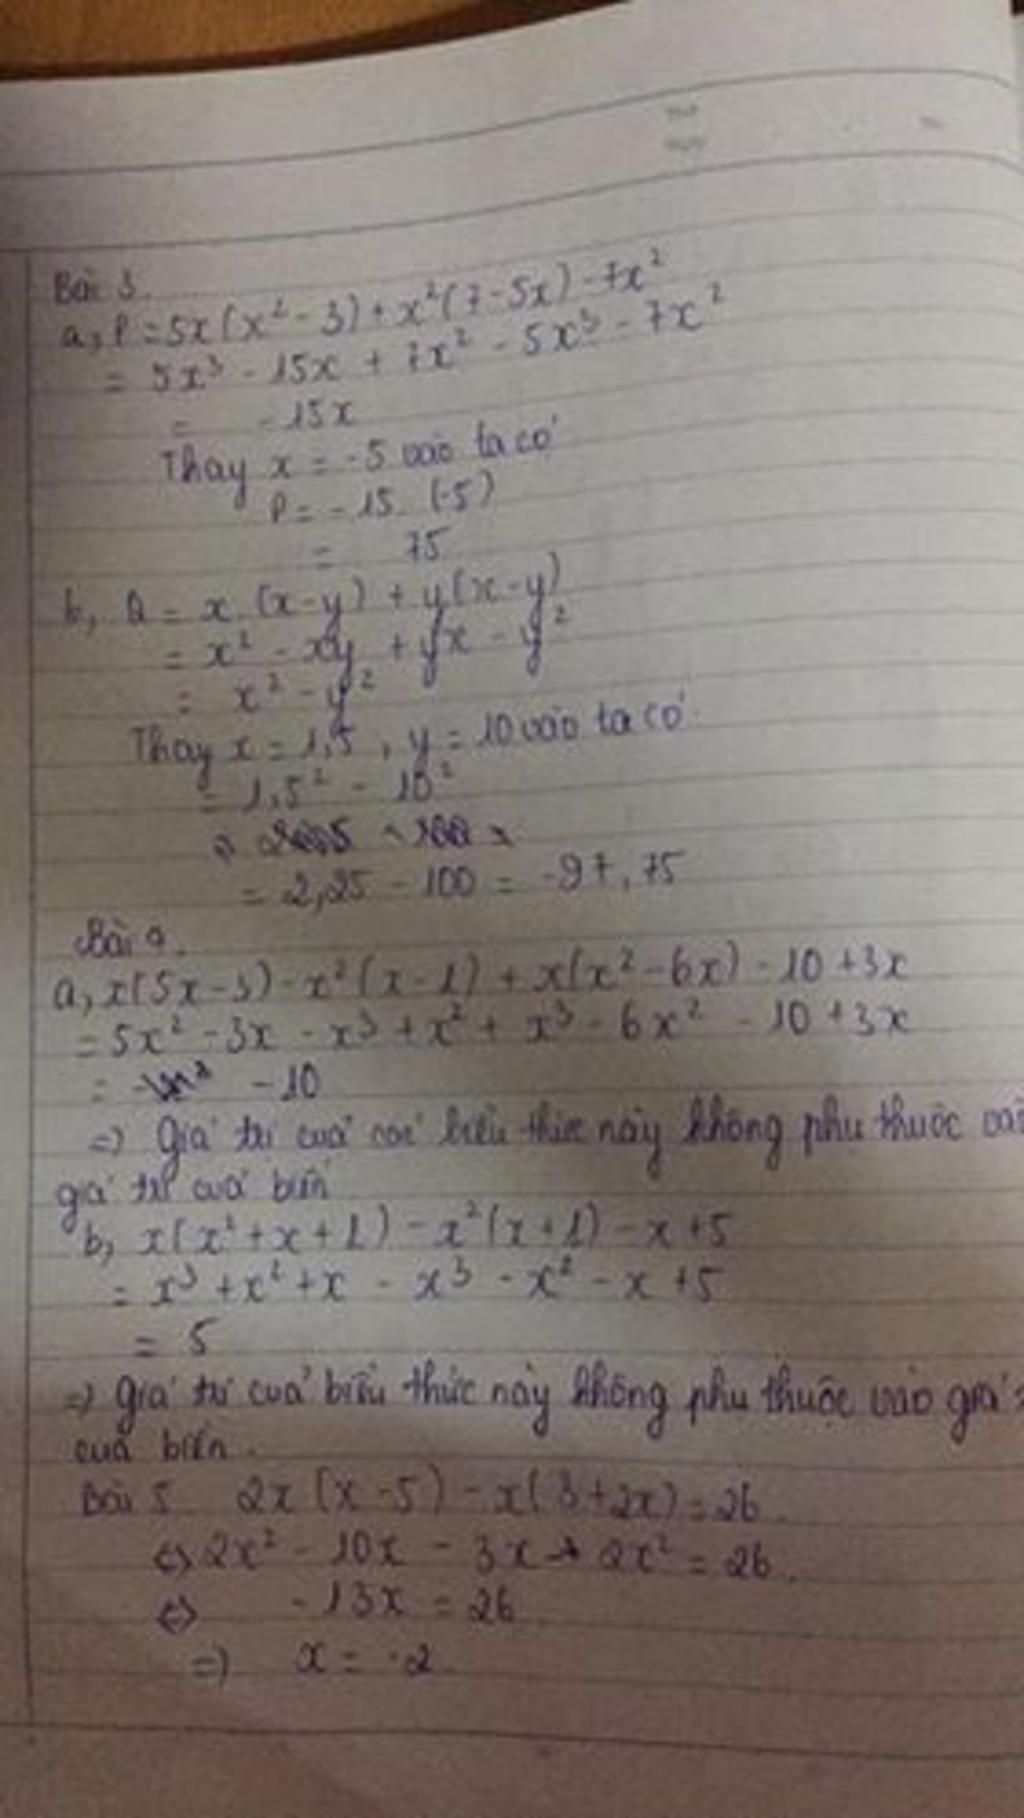 Bài 3.
a, P = 5x(x² - 3) + x²(7 - 5x) - 7x²
= 5x³ - 15x + 7x² - 5x³ - 7x²
= - 15x
Thay x = -5 vào ta có
P = - 15. (-5)
= 75
b, Q = x (x-y) + y(x-y)
= x² - xy + yx - y²
= x² - y²
Thay x = 1,5 , y = 10 vào ta có
= 1,5² - 10²
= 2,25 - 100 = -97,75
Bài 4.
a, x(5x-3) - x²(x-1) + x(x²-6x) - 10 + 3x
= 5x² - 3x - x³ + x² + x³ - 6x² - 10 + 3x
= - 10
=> giá trị của các biểu thức này không phụ thuộc vào
giá trị của biến
b, x(x²+x+1) - x²(x+1) - x + 5
= x³ + x² + x - x³ - x² - x + 5
= 5
=> giá trị của biểu thức này không phụ thuộc vào giá
của biến.
Bài 5 2x(x-5) - x(3+2x) = 26
<=> 2x² - 10x - 3x - 2x² = 26
<=> - 13x = 26
=> x = -2